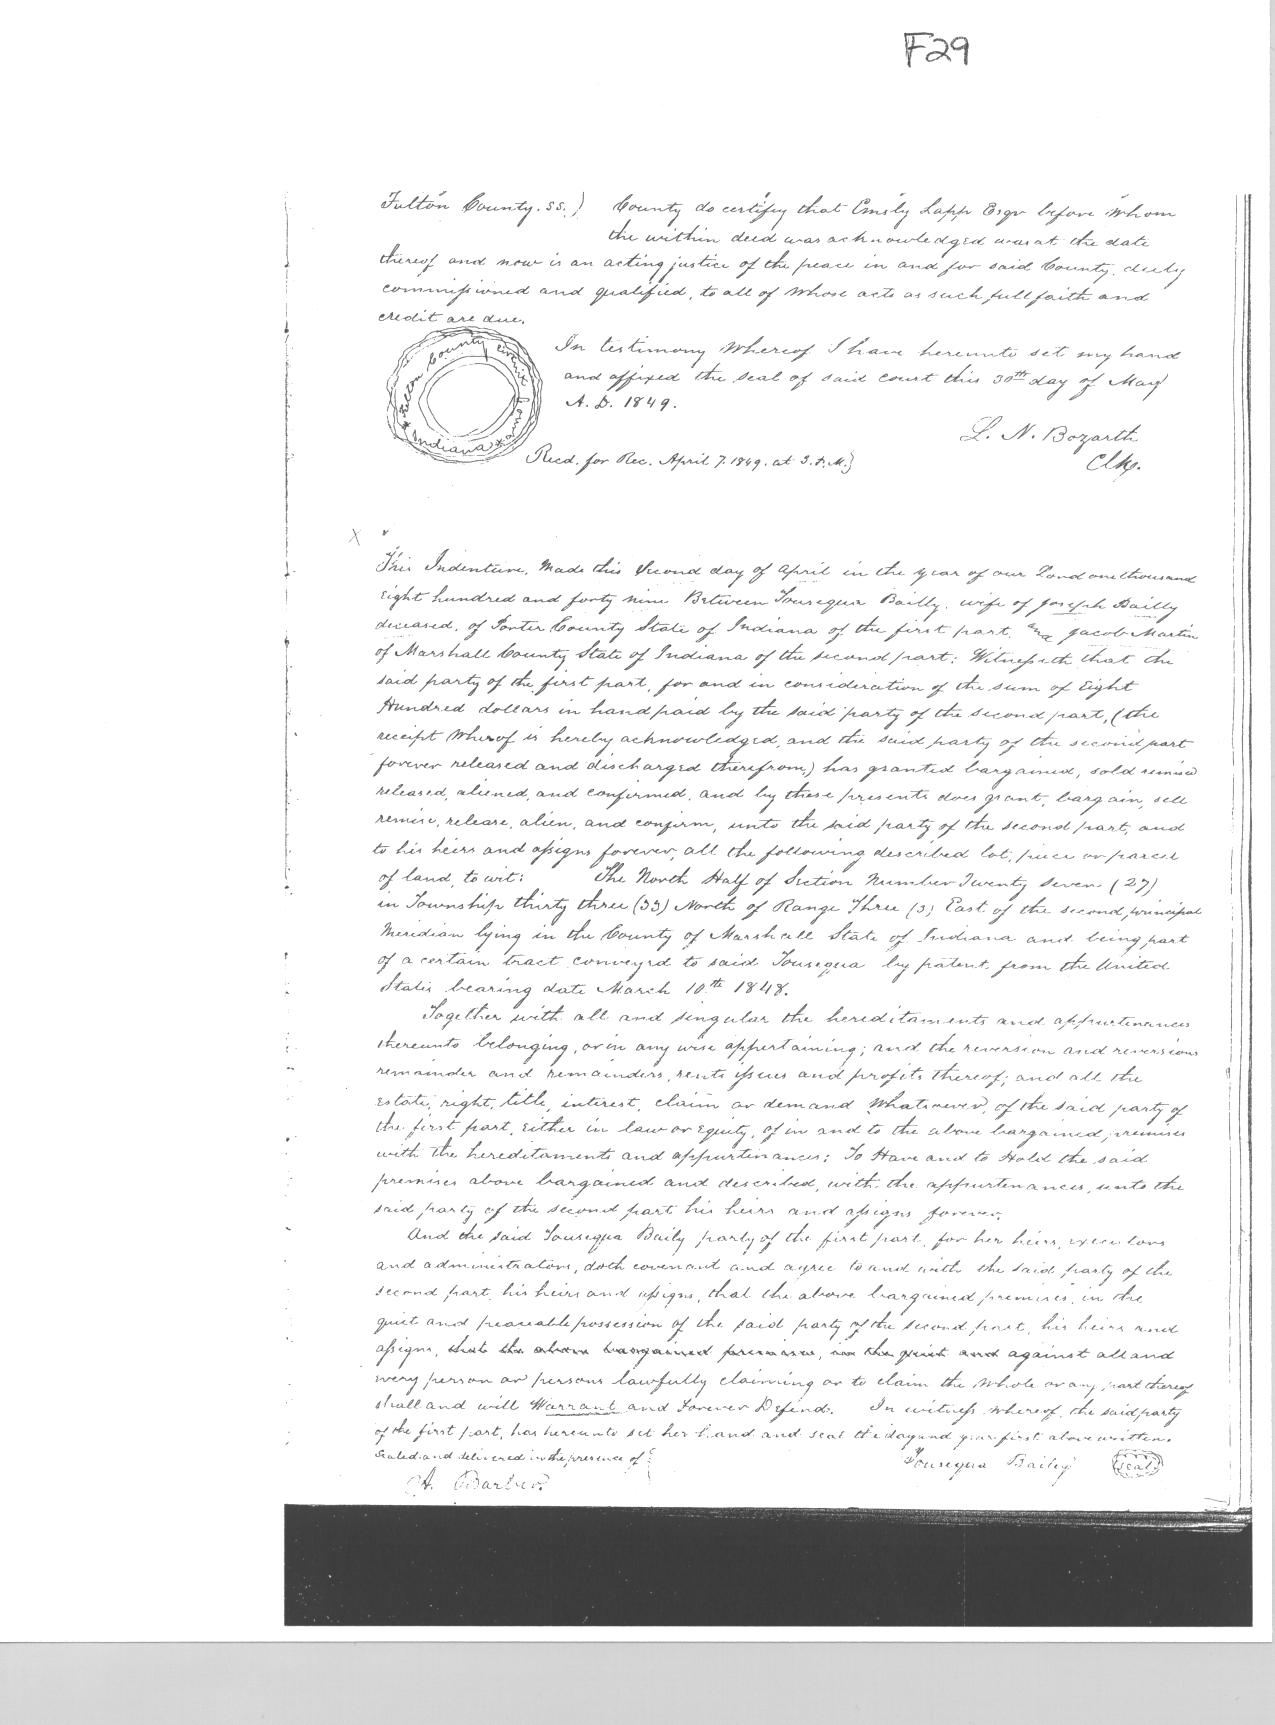 F29
Fulton County. ss.) County do certify that Emsly Lapp Esqr before whom
the within deed was acknowledged was at the date
thereof and now is an acting justice of the peace in and for said County, duly
commissioned and qualified, to all of whose acts as such full faith and
credit are due.
In testimony Whereof I have hereunto set my hand
and affixed the seal of said court this 30th day of May
A. D. 1849.
* Fulton County Circuit Court * Indiana
L. N. Bozarth
Clk.
Recd. for Rec. April 7. 1849. at 3. P. M.}
X
This Indenture, Made this Second day of April in the year of our Lord one thousand
Eight hundred and forty nine Between Tousequa Bailly, wife of Joseph Bailly
deceased, of Porter County State of Indiana of the first part, and Jacob Martin
of Marshall County State of Indiana of the second part: Witnesseth that the
said party of the first part, for and in consideration of the sum of Eight
Hundred dollars in hand paid by the said party of the second part, (the
receipt Whereof is hereby acknowledged, and the said party of the second part
forever released and discharged therefrom,) has granted bargained, sold remised
released, aliened, and confirmed, and by these presents does grant, bargain, sell
remise, release, alien, and confirm, unto the said party of the second part, and
to his heirs and assigns forever, all the following described lot, piece or parcel
of land, to wit: The North Half of Section Number Twenty Seven (27)
in Township thirty three (33) North of Range Three (3) East of the second principal
Meridian lying in the County of Marshall State of Indiana and being part
of a certain tract conveyed to said Tousequa by patent from the United
States bearing date March 10th 1848.
Together with all and singular the hereditaments and appurtenances
thereunto belonging, or in any wise appertaining; and the reversion and reversions
remainder and remainders, rents issues and profits thereof; and all the
Estate, right, title, interest, claim or demand Whatsoever, of the said party of
the first part, Either in law or Equity, of in and to the above bargained premises
with the hereditaments and appurtenances; To Have and to Hold the said
premises above bargained and described, with the appurtenances, unto the
said party of the second part his heirs and assigns forever.
And the said Tousequa Baily party of the first part, for her heirs, executors
and administrators, doth covenant and agree to and with the said party of the
second part, his heirs and assigns, that the above bargained premises, in the
quiet and peaceable possession of the said party of the second part, his heirs and
assigns, that the above bargained premises, in the quiet and against all and
every person or persons lawfully claiming or to claim the Whole or any part thereof
shall and will Warrant and Forever Defend. In witness whereof, the said party
of the first part, has hereunto set her hand and seal the day and year first above written.
Sealed and delivered in the presence of
Tousequa Bailey seal
A. Barber